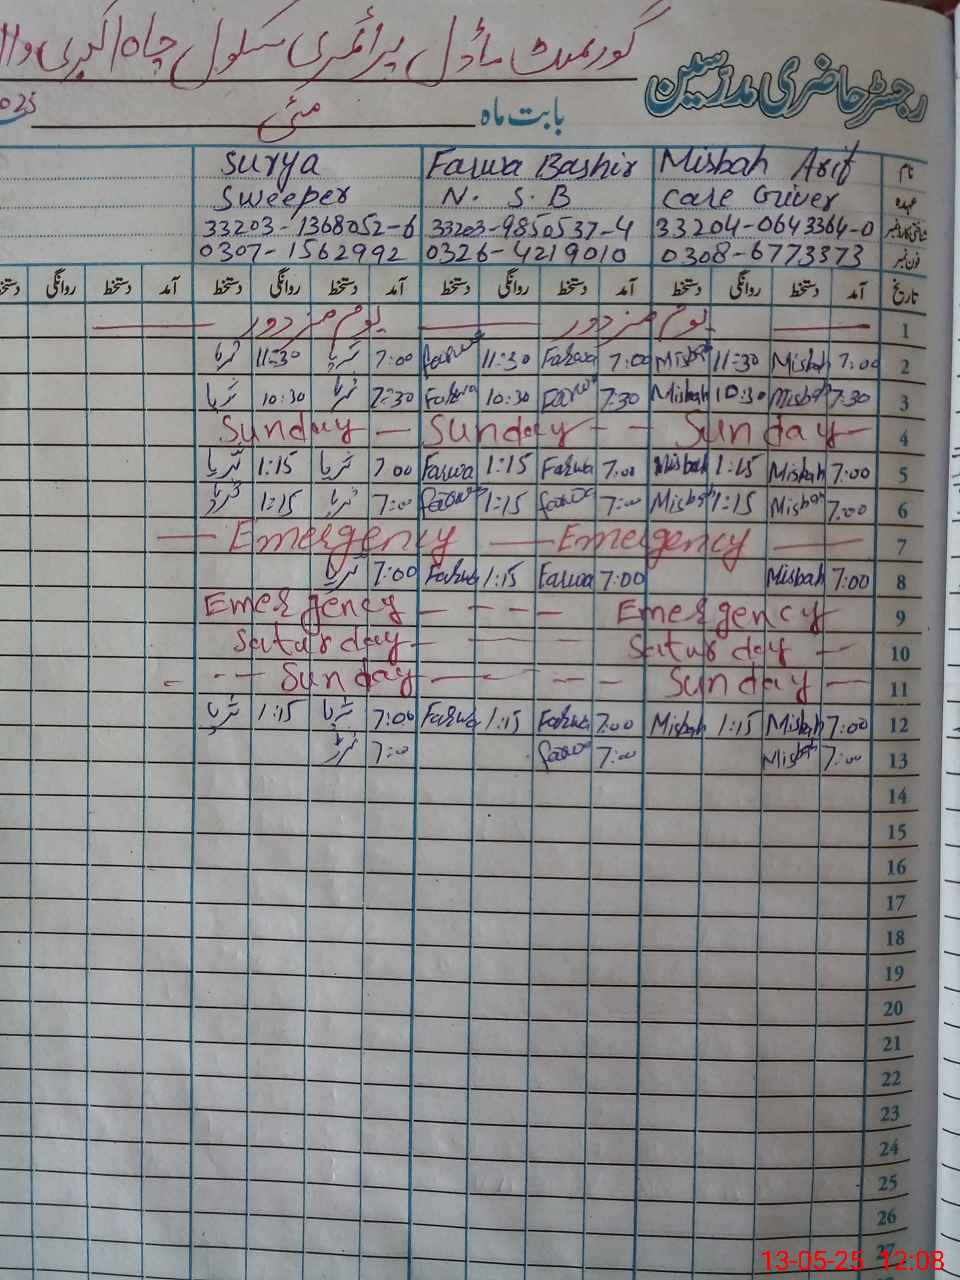 گورنمنٹ ماڈل پرائمری سکول چاہ اکبری
رجسٹر حاضری مدرسین
بابت ماہ مئی
نام Misbah Arif Farwa Bashir Surya
عہدہ Care Giver N. S. B Sweeper
شناختی کارڈ نمبر 33204-0643364-0 33203-9850537-4 33203-1368052-6
فون نمبر 0308-6773373 0326-4219010 0307-1562992
تاریخ آمد دستخط روانگی دستخط آمد دستخط روانگی دستخط آمد دستخط روانگی دستخط آمد دستخط روانگی
1 یوم مزدور یوم مزدور
2 7:00 Misbah 11:30 Misbah 7:00 Farwa 11:30 Farwa 7:00 ثریا 11:30 ثریا
3 7:30 Misbah 10:30 Misbah 7:30 Farwa 10:30 Farwa 7:30 ثریا 10:30 ثریا
4 Sunday — Sunday - - Sunday —
5 7:00 Misbah 1:15 Misbah 7:00 Farwa 1:15 Farwa 7:00 ثریا 1:15 ثریا
6 7:00 Misbah 1:15 Misbah 7:00 Farwa 1:15 Farwa 7:00 ثریا 1:15 ثریا
7 — Emergency — Emergency —
8 7:00 Misbah 7:00 Farwa 1:15 Farwa 7:00 ثریا
9 Emergency - - - - Emergency
10 Saturday - - - - Saturday —
11 - - - Sunday - - - - Sunday —
12 7:00 Misbah 1:15 Misbah 7:00 Farwa 1:15 Farwa 7:00 ثریا 1:15 ثریا
13 7:00 Misbah 7:00 Farwa 7:00 ثریا
14
15
16
17
18
19
20
21
22
23
24
25
26
27
13-05-25 12:08